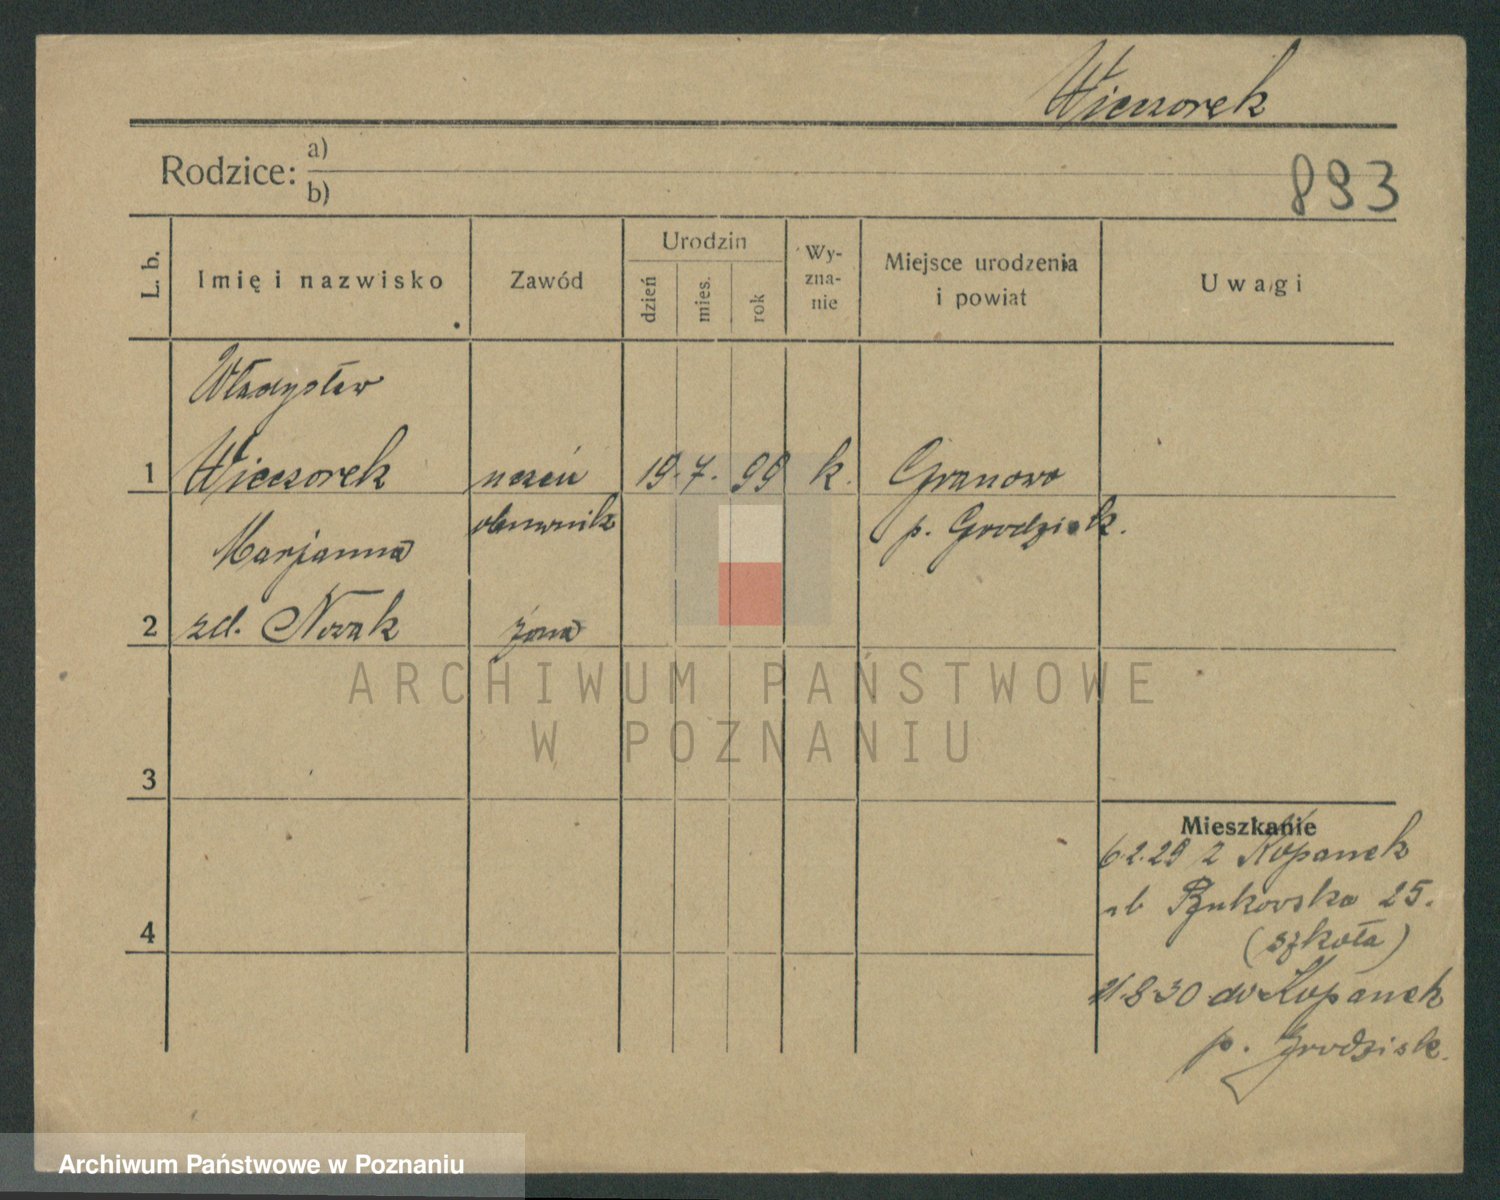 Wieczorek
Rodzice: a)
b)
893
L. b. Imię i nazwisko Zawód Urodzin dzień mies. rok Wy-zna-nie Miejsce urodzenia i powiat Uwagi
Władysław
1 Wieczorek uczeń 19. 7. 99 k. Granowo
obuwnik p. Grodzisk.
Marjanna
2 zd. Nowak żona
ARCHIWUM PAŃSTWOWE
W POZNANIU
3
Mieszkanie
6.2.29 z Kopanek
Bukowska 25.
4
(szkoła)
8 30 do Kopanek
p. Grodzisk.
Archiwum Państwowe w Poznaniu